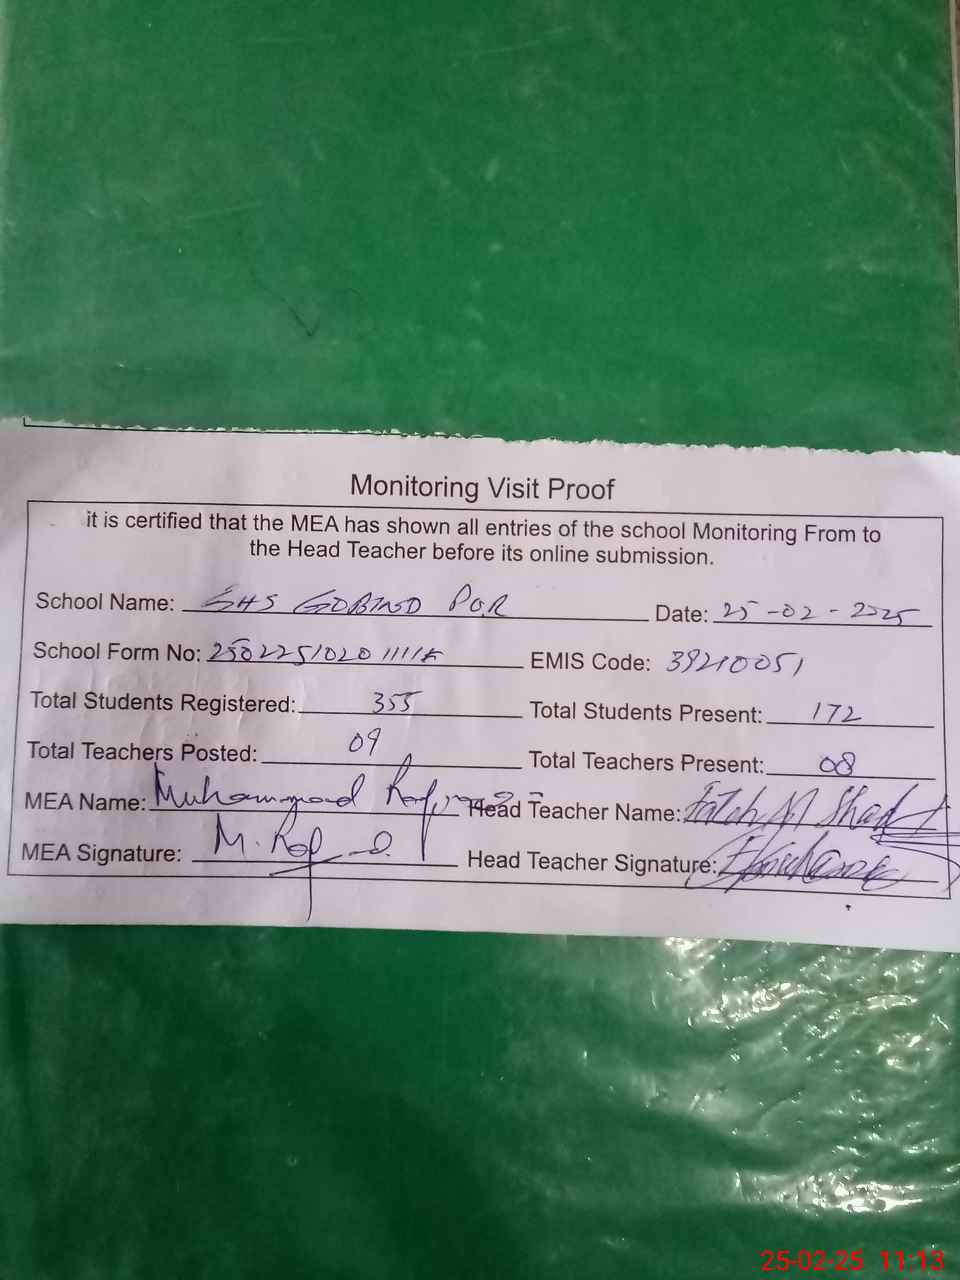 Monitoring Visit Proof
it is certified that the MEA has shown all entries of the school Monitoring From to
the Head Teacher before its online submission.
School Name: GHS GOBIND POR Date: 25-02-2025
School Form No: EMIS Code: 39210051
Total Students Registered: 355 Total Students Present: 172
Total Teachers Posted: 09 Total Teachers Present: 08
MEA Name: Muhammad Head Teacher Name: Fateh M
MEA Signature: M. Head Teacher Signature:
25-02-25 11:13